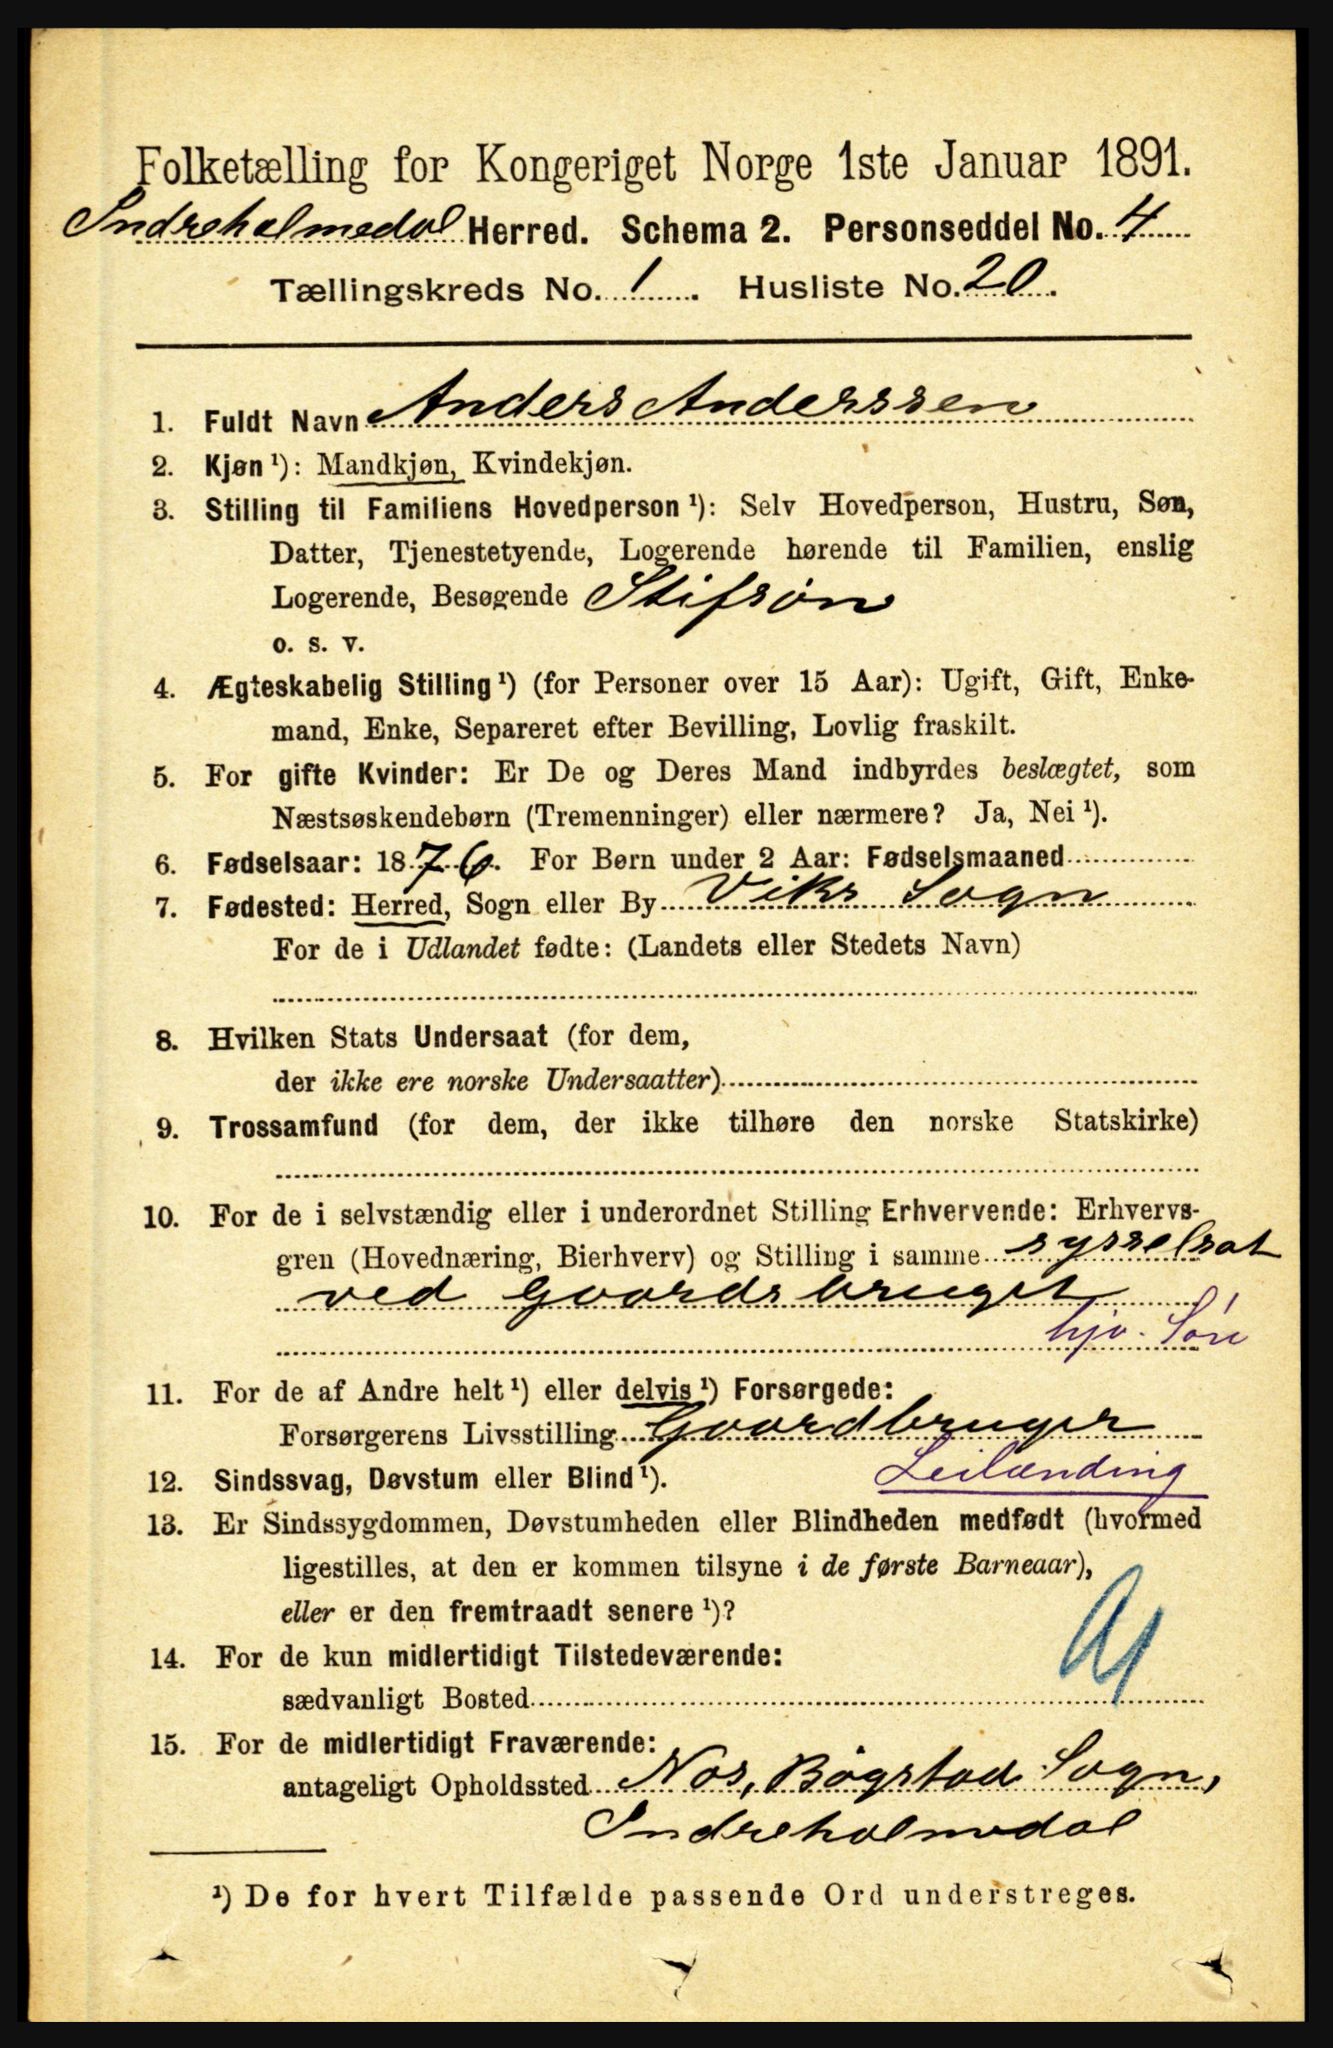 Folketælling for Kongeriget Norge 1ste Januar 1891.
Indreholmedal Herred. Schema 2. Personseddel No. 4
Tællingskreds No. 1. Husliste No. 20.
1. Fuldt Navn Anders Anderssen
2. Kjøn ¹): Mandkjøn, Kvindekjøn.
3. Stilling til Familiens Hovedperson ¹): Selv Hovedperson, Hustru, Søn,
Datter, Tjenestetyende, Logerende hørende til Familien, enslig
Logerende, Besøgende Stifsøn
o. s. v.
4. Ægteskabelig Stilling ¹) (for Personer over 15 Aar): Ugift, Gift, Enke-
mand, Enke, Separeret efter Bevilling, Lovlig fraskilt.
5. For gifte Kvinder: Er De og Deres Mand indbyrdes beslægtet, som
Næstsøskendebørn (Tremenninger) eller nærmere? Ja, Nei ¹).
6. Fødselsaar: 1876. For Børn under 2 Aar: Fødselsmaaned
7. Fødested: Herred, Sogn eller By Viks Sogn
For de i Udlandet fødte: (Landets eller Stedets Navn)
8. Hvilken Stats Undersaat (for dem,
der ikke ere norske Undersaatter)
9. Trossamfund (for dem, der ikke tilhøre den norske Statskirke)
10. For de i selvstændig eller i underordnet Stilling Erhvervende: Erhvervs-
gren (Hovednæring, Bierhverv) og Stilling i samme sysselsat
ved Gaardsbruget
hjv. Søn
11. For de af Andre helt ¹) eller delvis ¹) Forsørgede:
Forsørgerens Livsstilling Gaardbruger
Leilænding
12. Sindssvag, Døvstum eller Blind ¹).
13. Er Sindssygdommen, Døvstumheden eller Blindheden medfødt (hvormed
ligestilles, at den er kommen tilsyne i de første Barneaar),
eller er den fremtraadt senere ¹)?
14. For de kun midlertidigt Tilstedeværende:
sædvanligt Bosted
15. For de midlertidigt Fraværende:
antageligt Opholdssted Nos, Bøgstad Sogn,
Indreholmedal
¹) De for hvert Tilfælde passende Ord understreges.